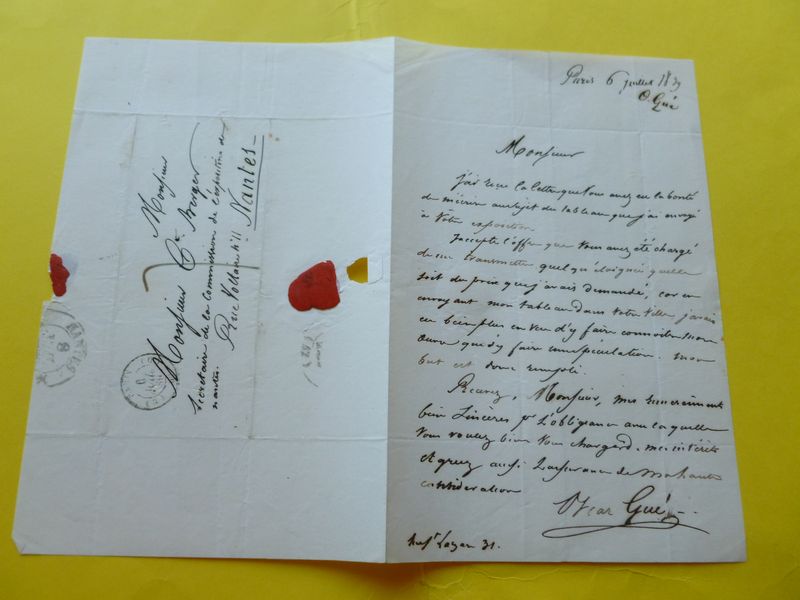 Monsieur
Monsieur Ce. Briger
Secrétaire de la Commission de l'exposition de
nantes.
Rue
Nantes
Paris 6 juillet 1839
O. Gué
Monsieur
J'ai reçu la lettre que vous avez eu la bonté
de m'écrire au sujet du tableau que j'ai envoyé
à votre exposition
J'accepte l'offre que vous avez été chargé
de me transmettre quelqu'éloignée quelle
soit du prix que j'avais demandé, car en
envoyant mon tableau dans votre ville j'avais
eu bien plus en vue d'y faire connoitre mon
œuvre que d'y faire une spéculation. mon
but est donc rempli.
Recevez, Monsieur, mes remerciments
bien sincères pr. l'obligeance avec laquelle
vous voulez bien vous charger de mes intérêts
et agréez aussi l'assurance de ma haute
considération
Oscar Gué
31.